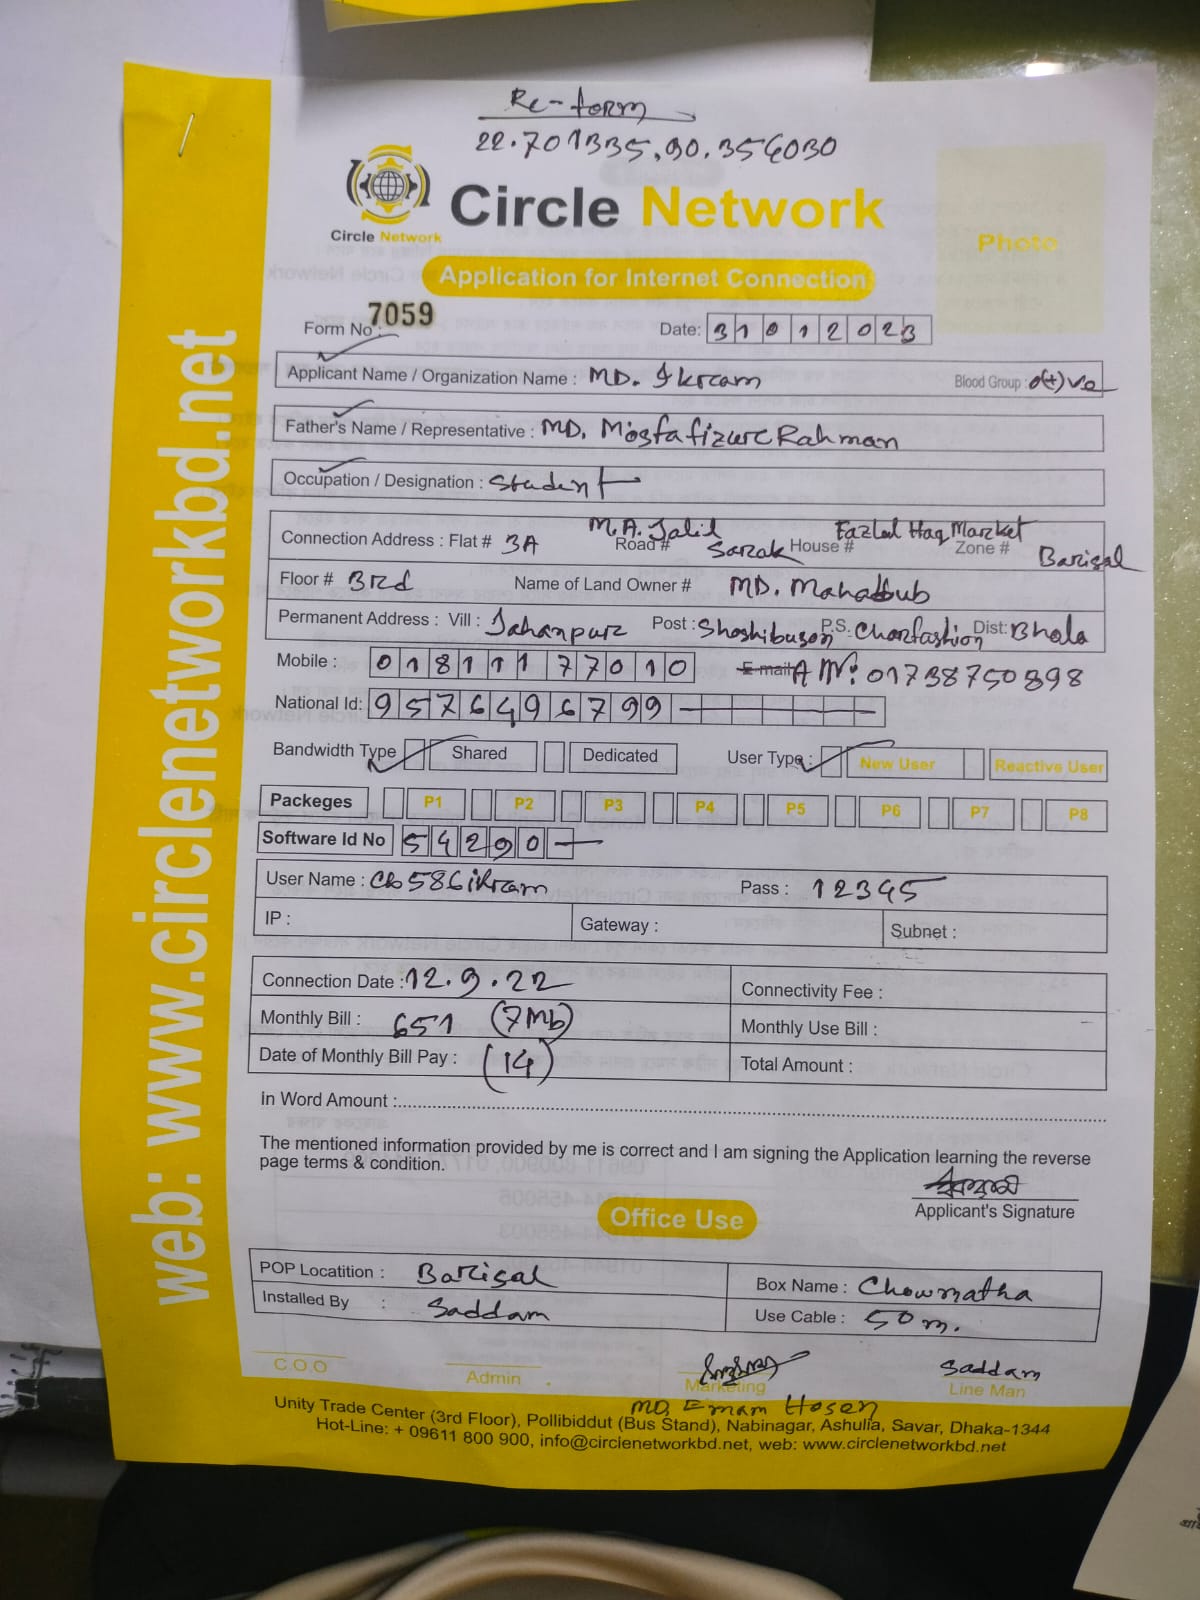 Re-form
22.701335,90.354030
Circle Network
Circle Network
Photo
Application for Internet Connection
Form No : 7059
Date: 31 01 2023
Applicant Name / Organization Name : MD. Ikram
Blood Group : O(+)ve
Father's Name / Representative : MD. Mosfafizure Rahman
Occupation / Designation : Student
Connection Address : Flat # 3A Road # M.A. Jalil Sarak House # Fazlul Haq Market Zone # Barisal
Floor # 3rd Name of Land Owner # MD. Mahabbub
Permanent Address : Vill : Jahanpur Post : Shoshibuson P.S. Charfashion Dist: Bhola
Mobile : 01811177010 E-mail 01738750898
National Id: 9576496799
Bandwidth Type Shared Dedicated User Type : New User Reactive User
Packeges P1 P2 P3 P4 P5 P6 P7 P8
Software Id No 54290
User Name : Cb586ikram Pass : 12345
IP : Gateway : Subnet :
Connection Date : 12.9.22 Connectivity Fee :
Monthly Bill : 651 (7Mb) Monthly Use Bill :
Date of Monthly Bill Pay : (14) Total Amount :
in Word Amount :
The mentioned information provided by me is correct and I am signing the Application learning the reverse
page terms & condition.
Applicant's Signature
Office Use
POP Locatition : Barisal Box Name : Chowmatha
Installed By : Saddam Use Cable : 50 m.
C.O.O Admin Marketing Saddam
Line Man
MD. Emam Hosen
Unity Trade Center (3rd Floor), Pollibiddut (Bus Stand), Nabinagar, Ashulia, Savar, Dhaka-1344
Hot-Line: + 09611 800 900, info@circlenetworkbd.net, web: www.circlenetworkbd.net
web: www.circlenetworkbd.net